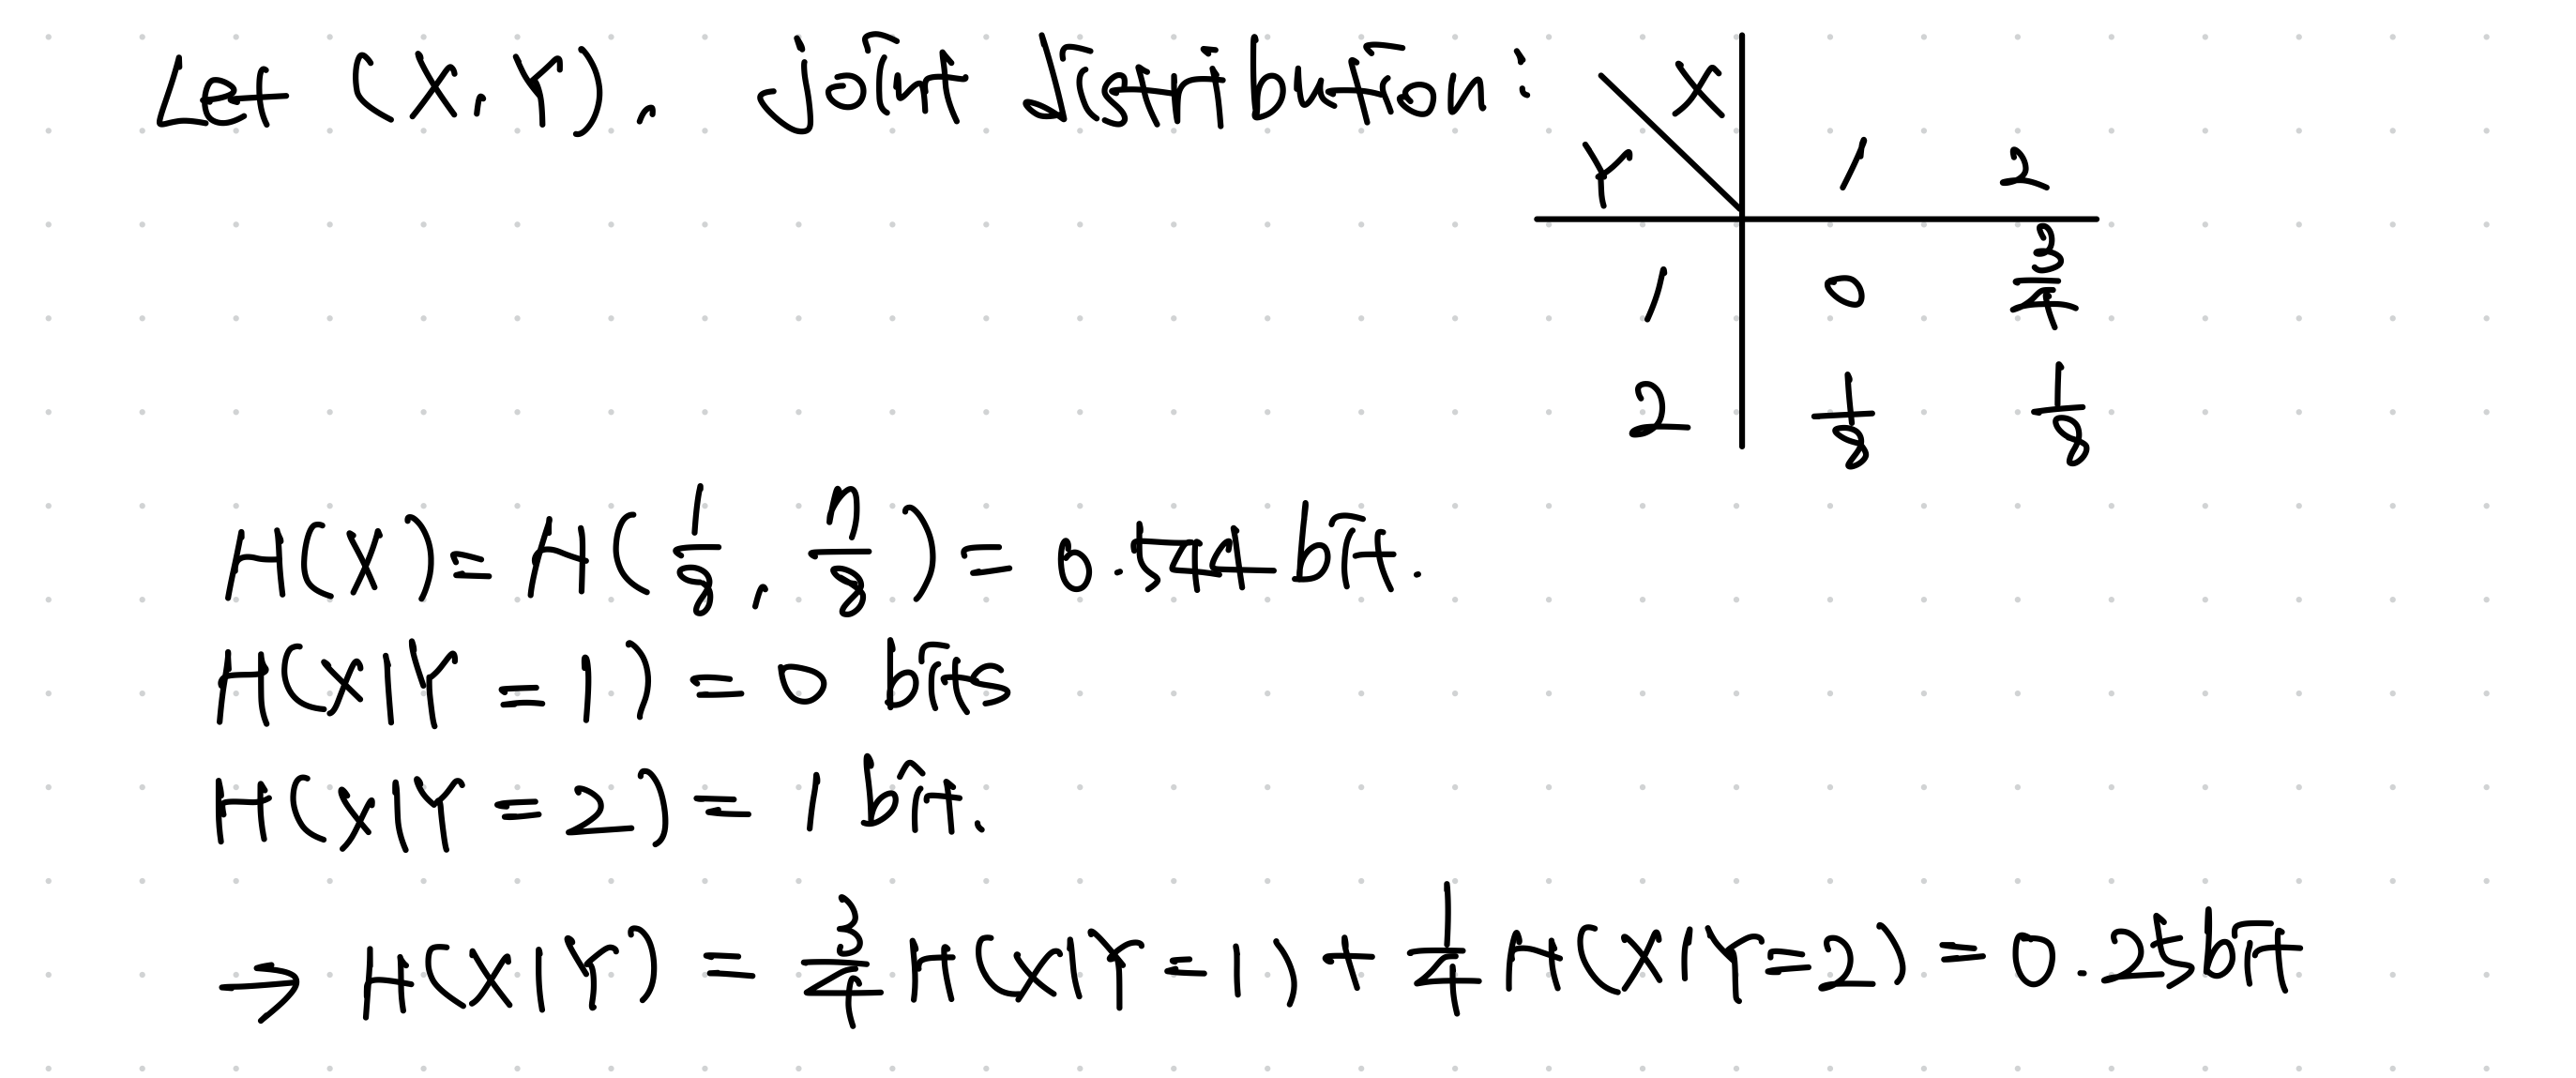 Let (X,Y). joint distribution:
X
Y 1 2
1 0 3/4
2 1/8 1/8
H(X) = H(1/8, 7/8) = 0.544 bit.
H(X|Y = 1) = 0 bits
H(X|Y = 2) = 1 bit.
→ H(X|Y) = 3/4 H(X|Y = 1) + 1/4 H(X|Y=2) = 0.25bit